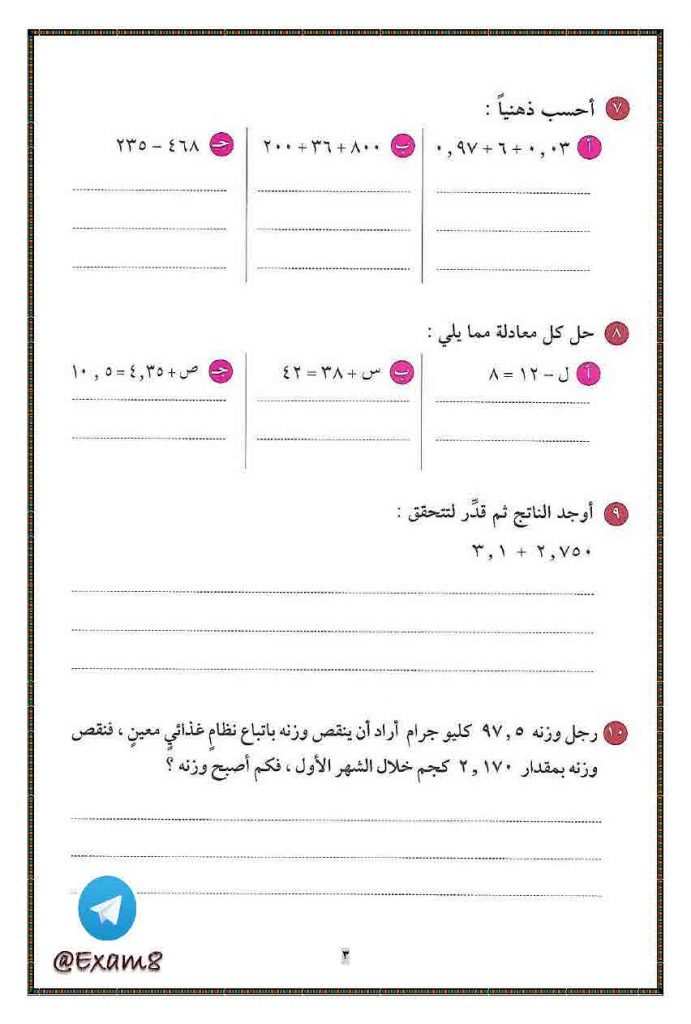 ٧ أحسب ذهنياً :
أ ٠,٠٣ + ٦ + ٠,٩٧
ب ٨٠٠ + ٣٦ + ٢٠٠
جـ ٤٦٨ – ٢٣٥
٨ حل كل معادلة مما يلي :
أ ل – ١٢ = ٨
ب س + ٣٨ = ٤٢
جـ ص + ٤,٣٥ = ١٠,٥
٩ أوجد الناتج ثم قدِّر لتتحقق :
٢,٧٥٠ + ٣,١
١٠ رجل وزنه ٩٧,٥ كليو جرام أراد أن ينقص وزنه باتباع نظامٍ غذائيٍ معينٍ ، فنقص
وزنه بمقدار ٢,١٧٠ كجم خلال الشهر الأول ، فكم أصبح وزنه ؟
@Exam8
٣